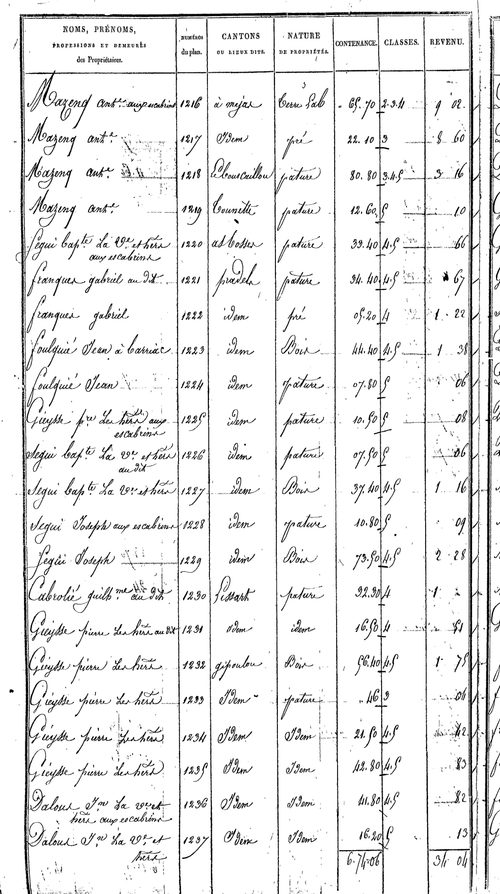 NOMS, PRÉNOMS, PROFESSIONS ET DEMEURES des Propriétaires. NUMÉROS du plan. CANTONS OU LIEUX DITS. NATURE DE PROPRIÉTÉS. CONTENANCE. CLASSES. REVENU.
Mazenq ant.ne aux escabrins 1216 a mejas Terre Lab 65.70 2.3.4 9 02
Mazenq ant.e 1217 Idem pré 22.10 3 8 60
Mazenq ant.e 1218 Lebouscaillou pature 80.80 3.4.5 3 16
Mazenq ant.e 1219 Tounette pature 12.60 5 10
Segui bap.te La V.e et hers 1220 as bosses pature 33.40 4.5 66
aux escabrins
franques gabriel au dit 1221 pradels pature 34.40 4.5 67
franques gabriel 1222 idem pré 05.20 4 1 22
foulquié Jean à barriac 1223 idem Bois 44.40 4.5 1 38
foulquié Jean 1224 idem pature 07.80 5 06
Gieysse p.re Les hers aux 1225 idem pature 10.50 5 08
escabrins
Segui bap.te La V.e et hers 1226 idem pature 07.50 5 06
au dit
Segui bap.te La V.e et hers 1227 idem Bois 37.40 4.5 1 16
Segui Joseph aux escabrins 1228 idem pature 10.80 5 09
Segui Joseph 1229 idem Bois 73.50 4.5 2 28
Cabrolié guilh.me au dit 1230 Lissart pature 32.30 4 1
Gieysse pierre Les hers au dit 1231 idem idem 16.50 4 51
Gieysse pierre Les hers 1232 gipoulou Bois 56.40 4.5 1 75
Gieysse pierre Les hers 1233 Idem pature 46 3 04
Gieysse pierre Les hers 1234 Idem Idem 21.50 4.5 42
Gieysse pierre Les hers 1235 Idem Idem 42.80 4.5 83
Dalous J.n La V.e et 1236 Idem Idem 41.80 4.5 82
hers aux escabrins
Dalous J.n La V.e et 1237 Idem Idem 16.20 5 13
hers 6.74.06 34 04